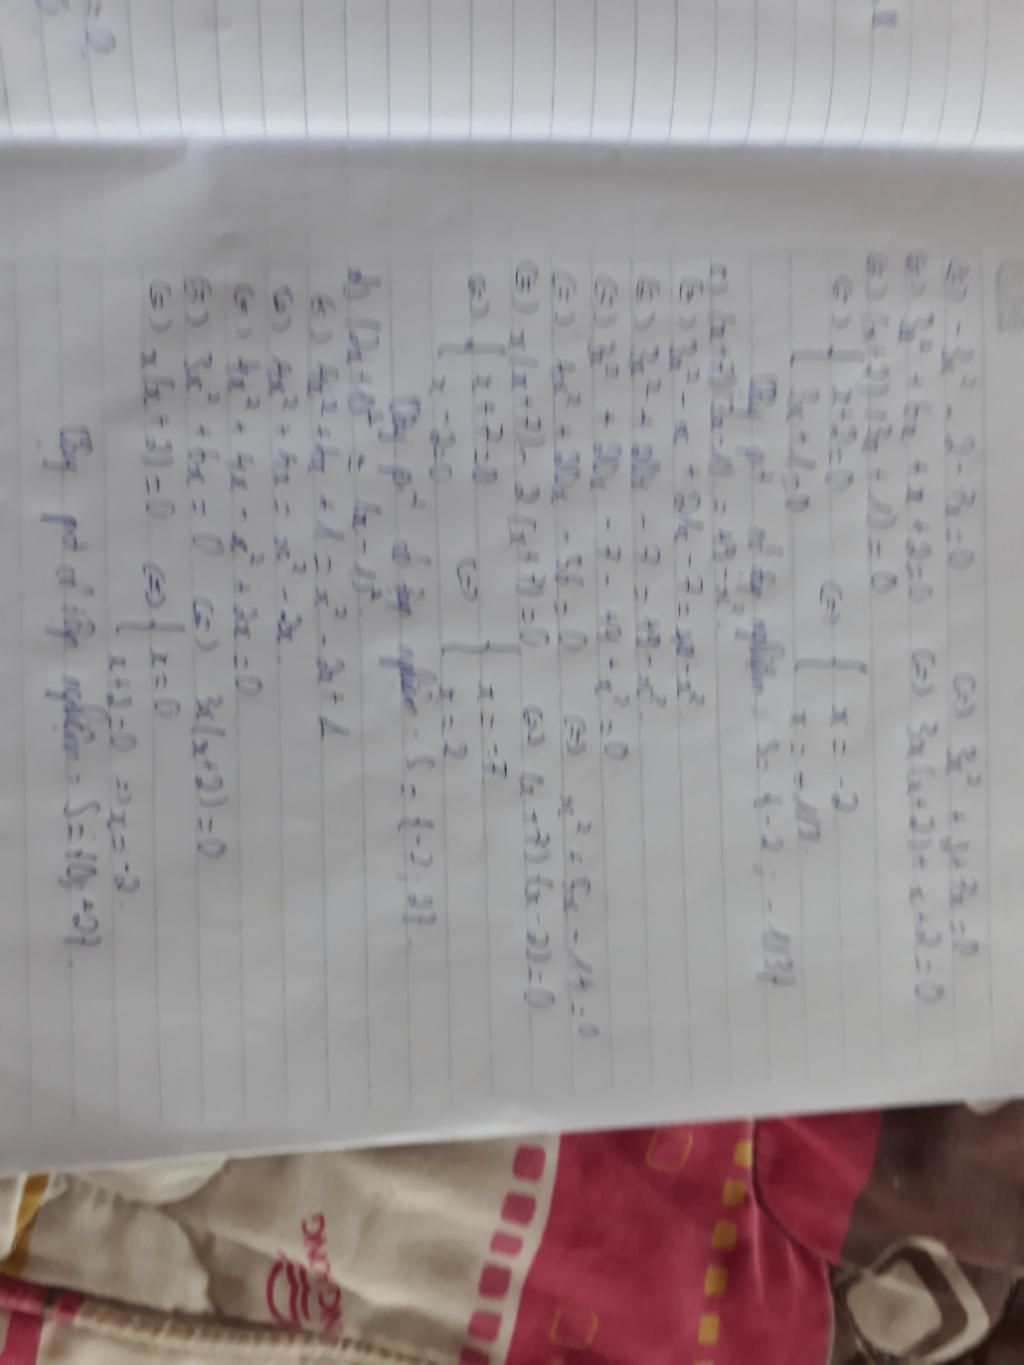 b) -3x² - 2 - 7x = 0 (=) 3x² + 2 + 7x = 0
(=) 3x² + 6x + x + 2 = 0 (=) 3x(x+2) + x+2 = 0
(=) (x+2)(3x+1) = 0
(=) { x+2=0 (=) { x = -2
3x+1=0 x = -1/3
Vậy pt có tập nghiệm: S = {-2; -1/3}
c) (x+7)(3x-1) = 49-x²
(=) 3x² - x + 21x - 7 = 49-x²
(=) 3x² + 20x - 7 = 49-x²
(=) 3x² + 20x - 7 - 49 + x² = 0
(=) 4x² + 20x - 56 = 0 (=) x² + 5x - 14 = 0
(=) x(x+7) - 2(x+7) = 0 (=) (x+7)(x-2) = 0
(=) { x+7=0 (=) { x = -7
x-2=0 x = 2
Vậy pt có tập nghiệm: S = {-7; 2}.
d) (2x+1)² = (x-1)²
(=) 4x² + 4x + 1 = x² - 2x + 1
(=) 4x² + 4x = x² - 2x
(=) 4x² + 4x - x² + 2x = 0
(=) 3x² + 6x = 0 (=) 3x(x+2) = 0
(=) x(x+2) = 0 (=) { x = 0
x+2=0 => x = -2.
Vậy pt có tập nghiệm: S = {0; -2}.